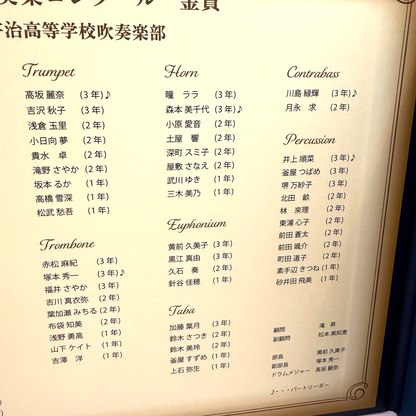 金賞
治高等学校吹奏楽部
Trumpet
高坂 麗奈 (3年)♪
吉沢 秋子 (3年)
浅倉 玉里 (2年)
小日向 夢 (2年)
貴水 卓 (2年)
滝野 さやか (2年)
坂本 るか (1年)
高橋 雪深 (1年)
松武 愁吾 (1年)
Trombone
赤松 麻紀 (3年)
塚本 秀一 (3年)♪
福井 さやか (3年)
吉川 真衣弥 (2年)
葉加瀬 みちる (2年)
布袋 知美 (2年)
浅野 勇高 (1年)
山下 ケイト (1年)
吉澤 洋 (1年)
Horn
瞳 ララ (3年)
森本 美千代 (3年)♪
小原 愛音 (2年)
土屋 響 (2年)
深町 スミ子 (2年)
屋敷 さなえ (2年)
武川 ゆき (1年)
三木 美乃 (1年)
Euphonium
黄前 久美子 (3年)
黒江 真由 (3年)
久石 奏 (2年)
針谷 佳穂 (1年)
Tuba
加藤 葉月 (3年)
鈴木 さつき (2年)
鈴木 美玲 (2年)
釜屋 すずめ (1年)
上石 弥生 (1年)
Contrabass
川島 緑輝 (3年)♪
月永 求 (2年)
Percussion
井上 順菜 (3年)♪
釜屋 つばめ (3年)
堺 万紗子 (3年)
北田 畝 (2年)
林 來理 (2年)
東浦 心子 (2年)
前田 蒼太 (2年)
前田 颯介 (2年)
町田 道子 (2年)
素手辺 きつね (1年)
砂井田 飛美 (1年)
顧問 滝 昇
副顧問 松本 美知恵
部長 黄前 久美子
副部長 塚本 秀一
ドラムメジャー 高坂 麗奈
♪・・・パートリーダー